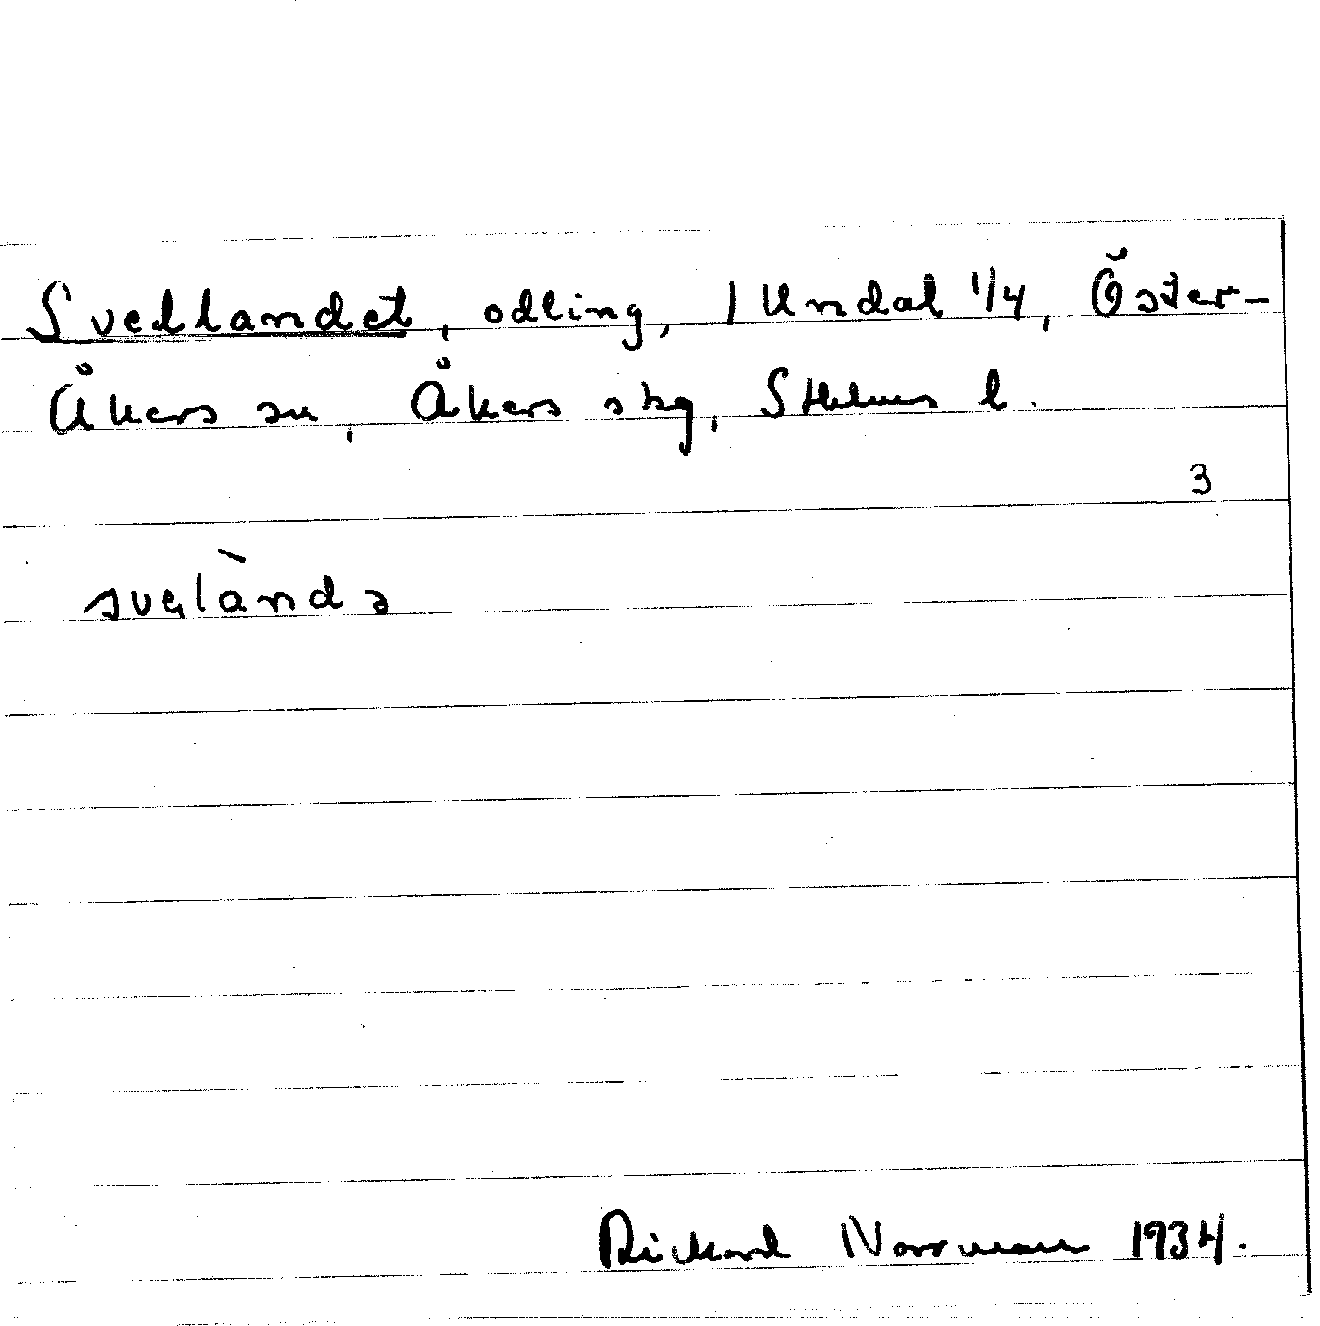 Svedlandet, odling, 1 Undal 1/4, Öster-
Åkers sn, Åkers skg, Sthlms l.
3
svelànd
Rickard Norrman 1934.